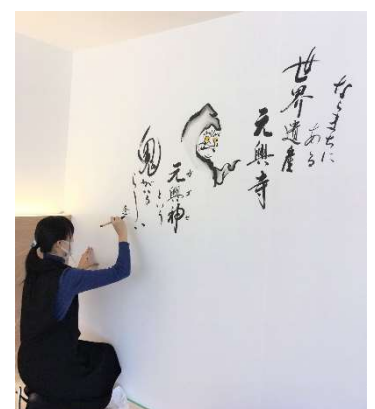 ならまちに
ある
世界遺産
元興寺
ガゴゼ
元興神
という
鬼がいる
らしい